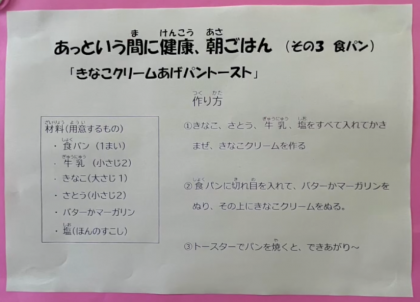 あっという間に健康、朝ごはん （その3 食パン）
「きなこクリームあげパントースト」
作り方
材料(用意するもの)
・食パン（1まい）
・牛乳（小さじ2）
・きなこ(大さじ1)
・さとう(小さじ2)
・バターかマーガリン
・塩(ほんのすこし)
①きなこ、さとう、牛乳、塩をすべて入れてかき
まぜ、きなこクリームを作る
②食パンに切れ目を入れて、バターかマーガリンを
ぬり、その上にきなこクリームをぬる。
③トースターでパンを焼くと、できあがり～